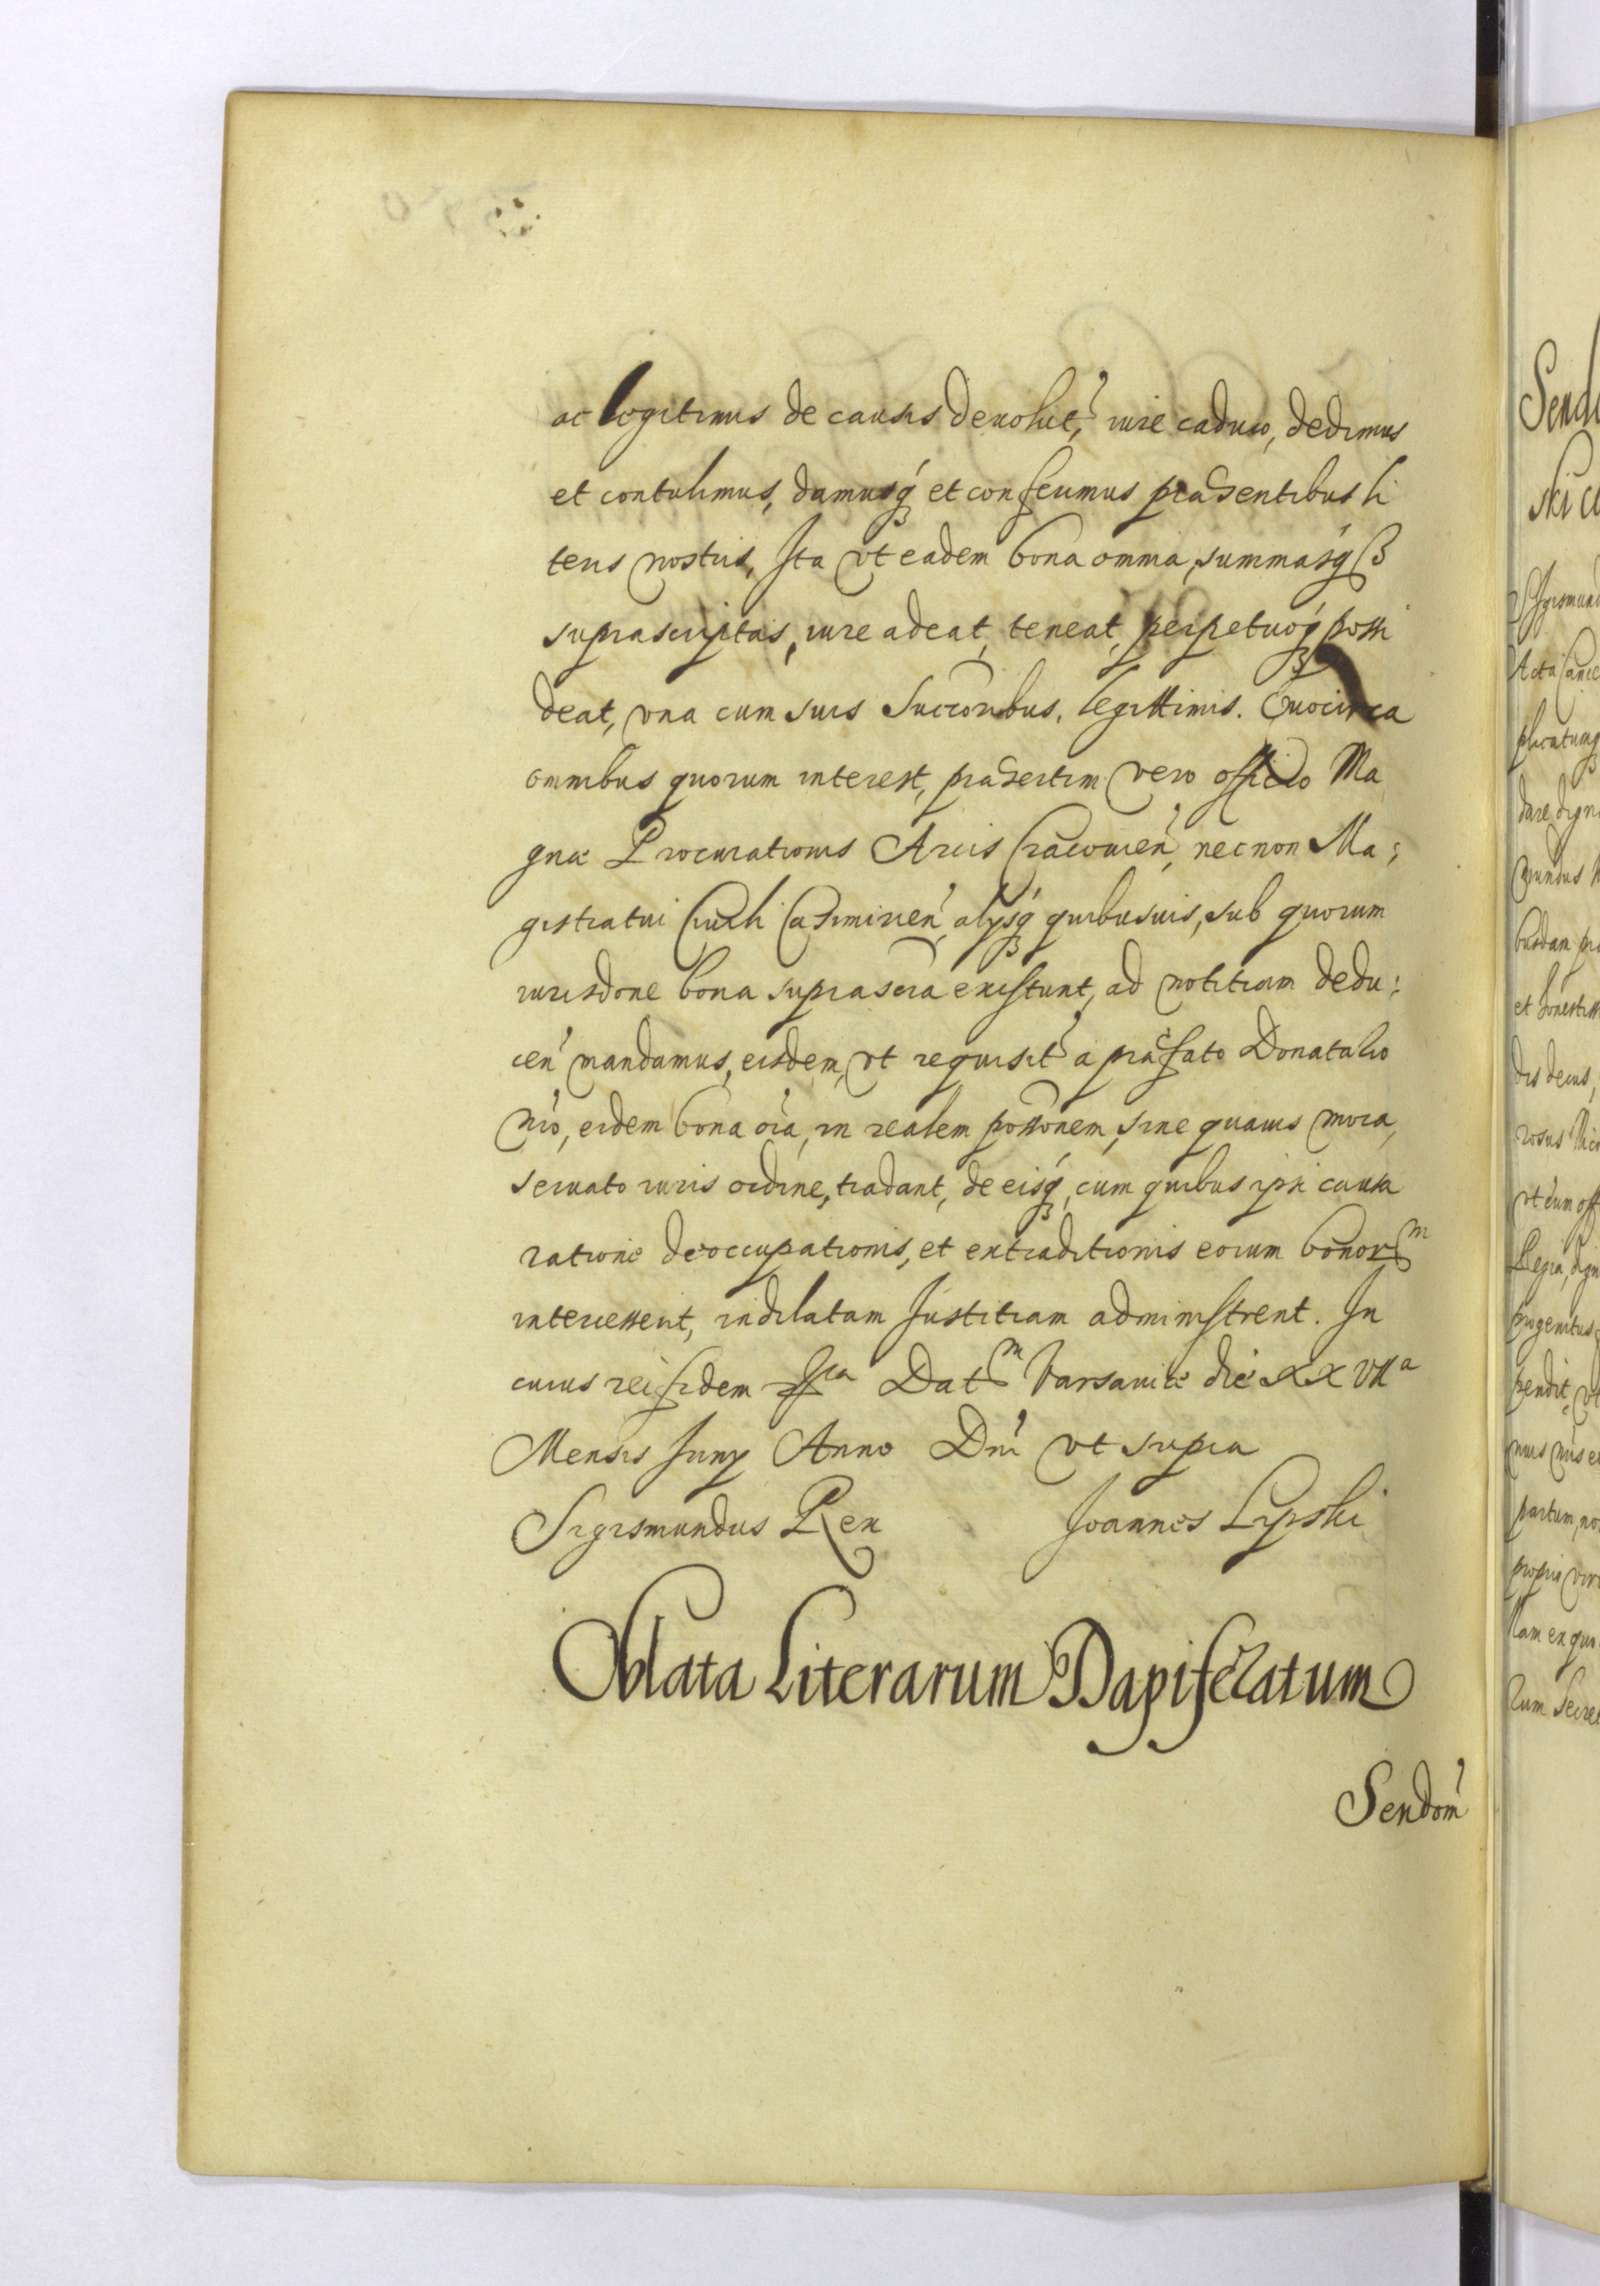 ac legitimis de causis deuolut, iure caduco, dedimus
et contulimus, damusq et conferimus præsentibus li
teris nostris, Ita vt eadem bona omnia, summasq
suprascriptas, iure adeat, teneat, perpetuoq possi
deat, vna cum suis Succoribus, legittimis. Quocirca
omnibus quorum interest, præsertim vero officio Ma
gnæ Procurationis Arcis Cracouien, necnon Ma:
gistratui Ciuili Casimirien, alysq quibusuis, sub quorum
iurisdone bona suprascra existunt, ad notitiam dedu:
cen mandamus, eisdem, vt requisit a præfato Donatario
nro, eidem bona oia, in realem possonem, sine quauis mora,
seruato iuris ordine, tradant, de eisq, cum quibus ipsi causa
ratione deoccupationis, et extraditionis eorum bonorm
intercesserit, indilatam Justitiam administrent. In
cuius rei fidem Datm Varsauiæ die XXVIIa
Mensis Juny Anno Dni vt supra
Sigismundus Rex Joannes Lipski
Oblata Literarum Dapiferatum
Sendom